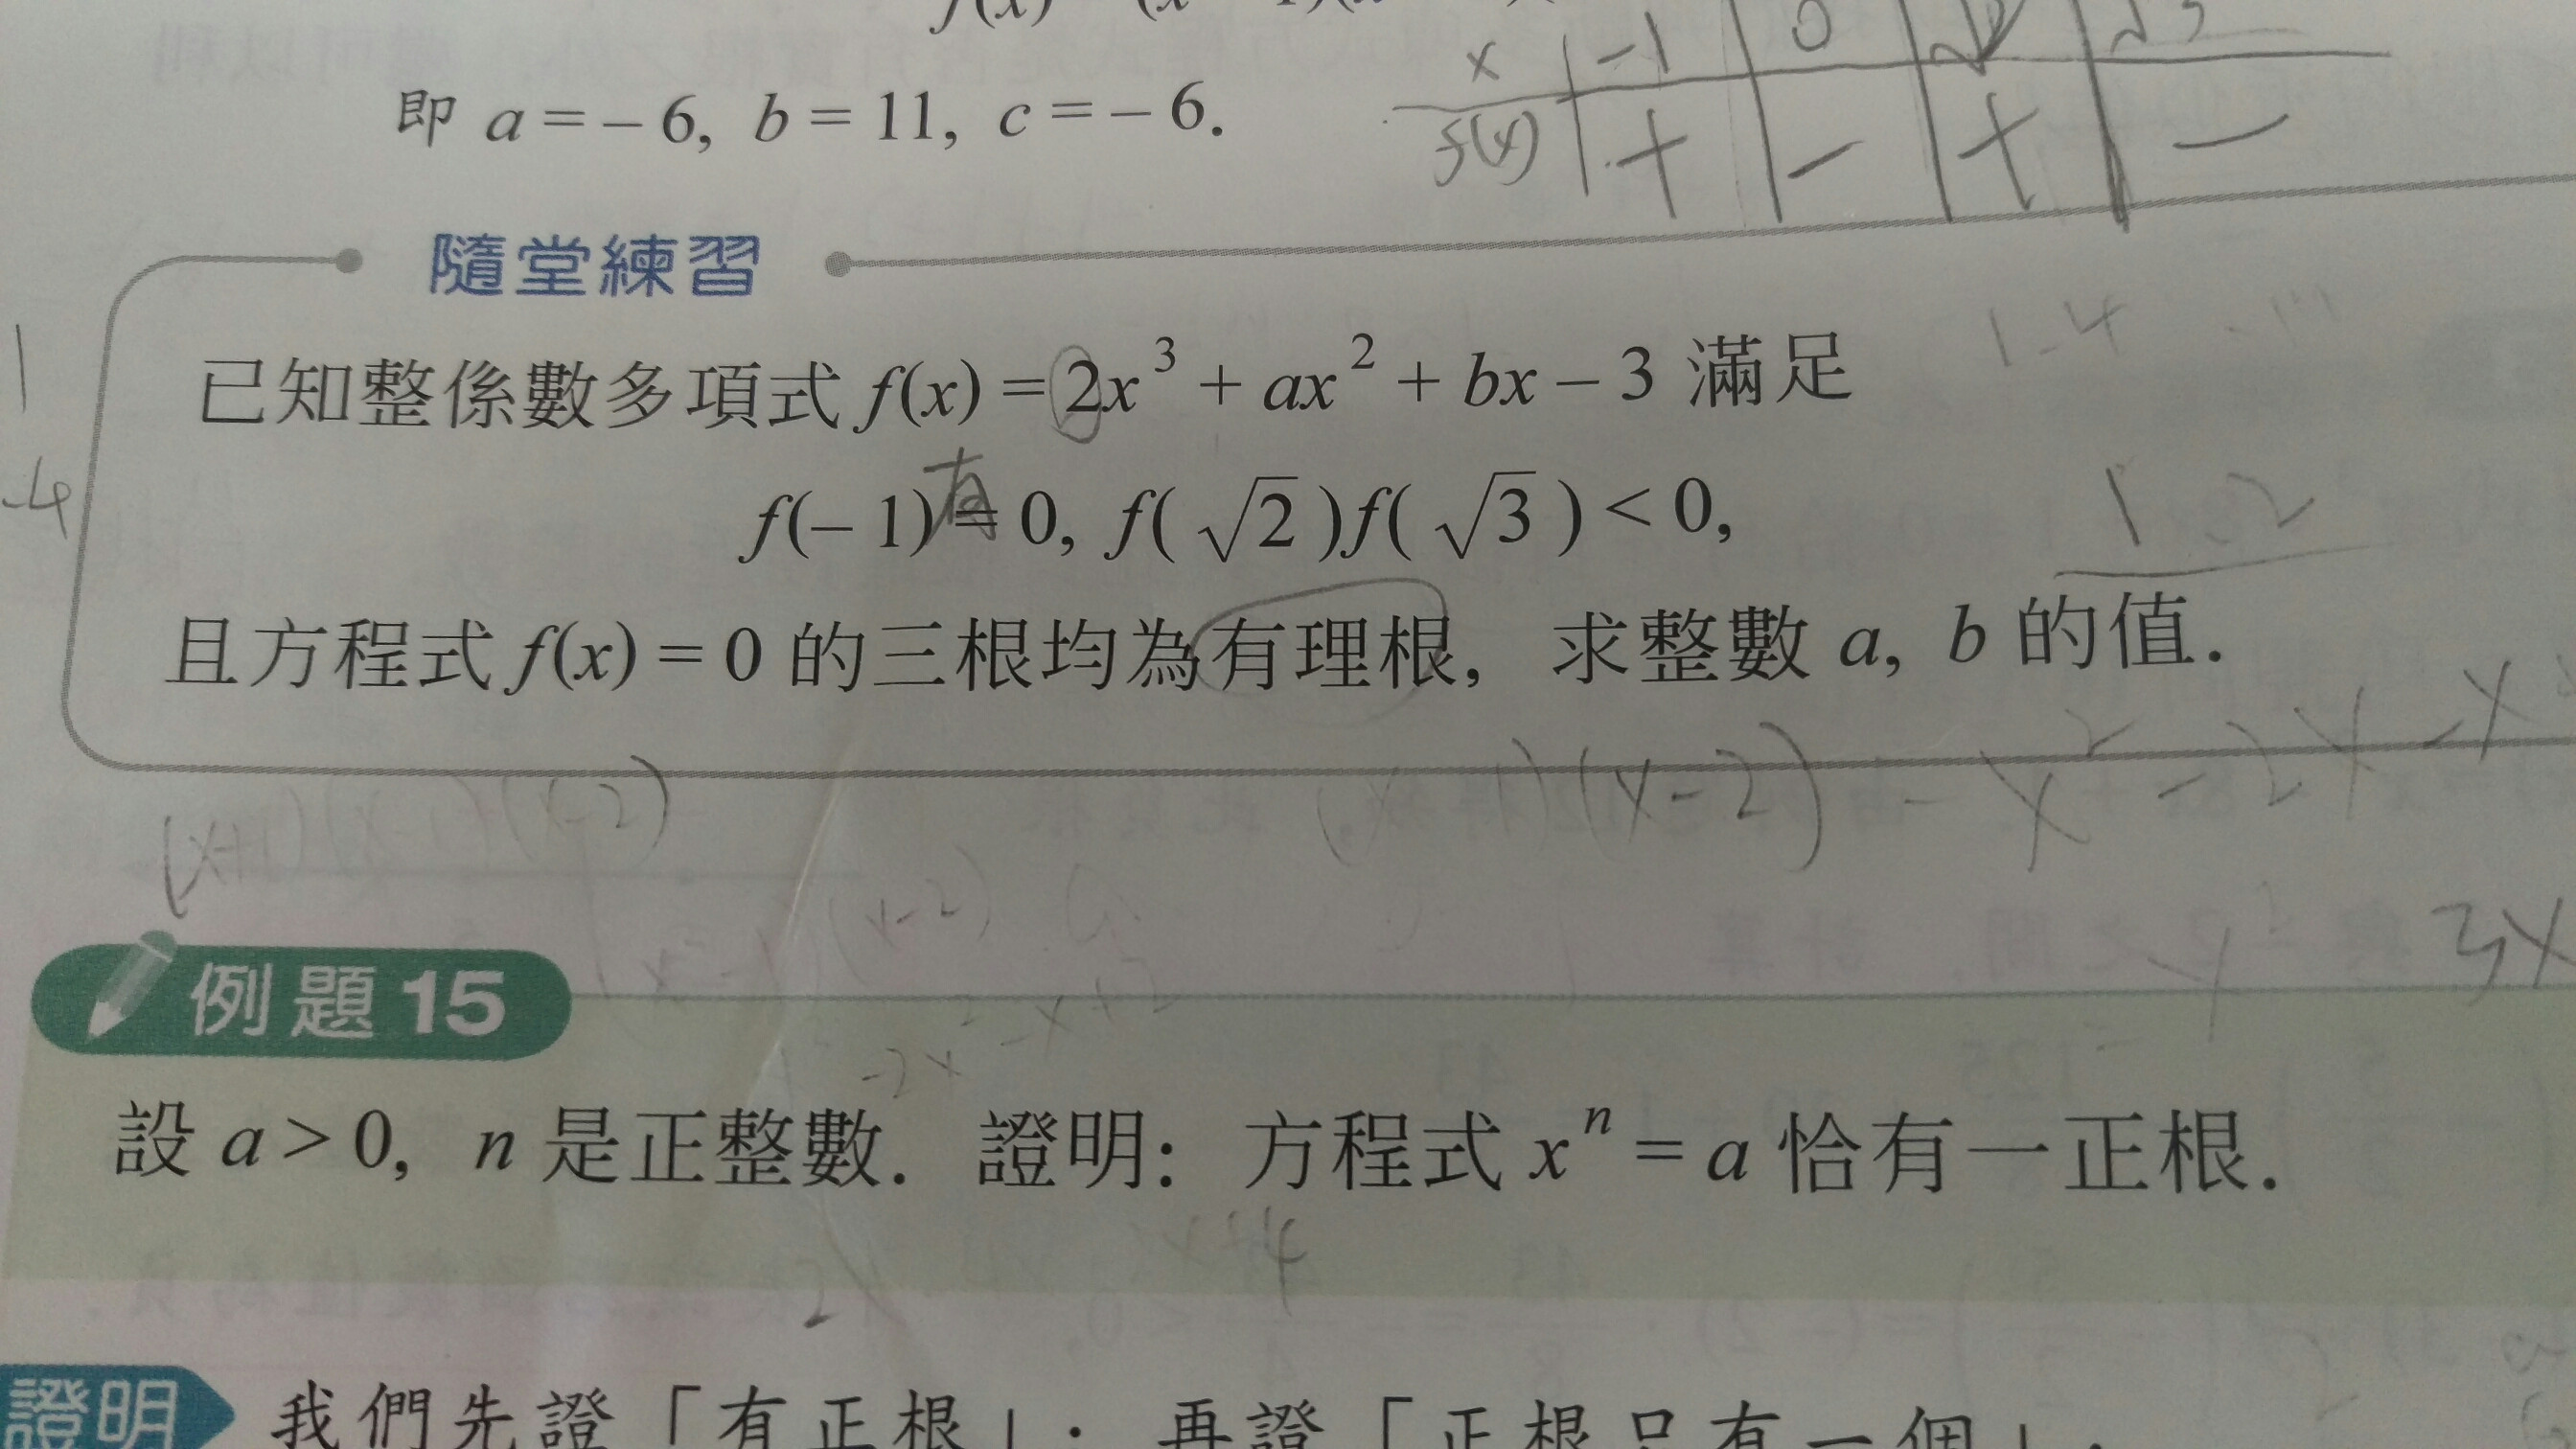 即 a = – 6, b = 11, c = – 6.
x -1 0
f(x) + − + −
隨堂練習
1-4
已知整係數多項式 f(x) = 2x³ + ax² + bx – 3 滿足
-4
有
f(– 1) = 0, f(√2)f(√3) < 0,
且方程式 f(x) = 0 的三根均為有理根, 求整數 a, b 的值.
(x-2)
(x-2)
3x
例題 15
設 a > 0, n 是正整數. 證明: 方程式 xⁿ = a 恰有一正根.
證明 我們先證「有正根」. 再證「正根只有一個」.